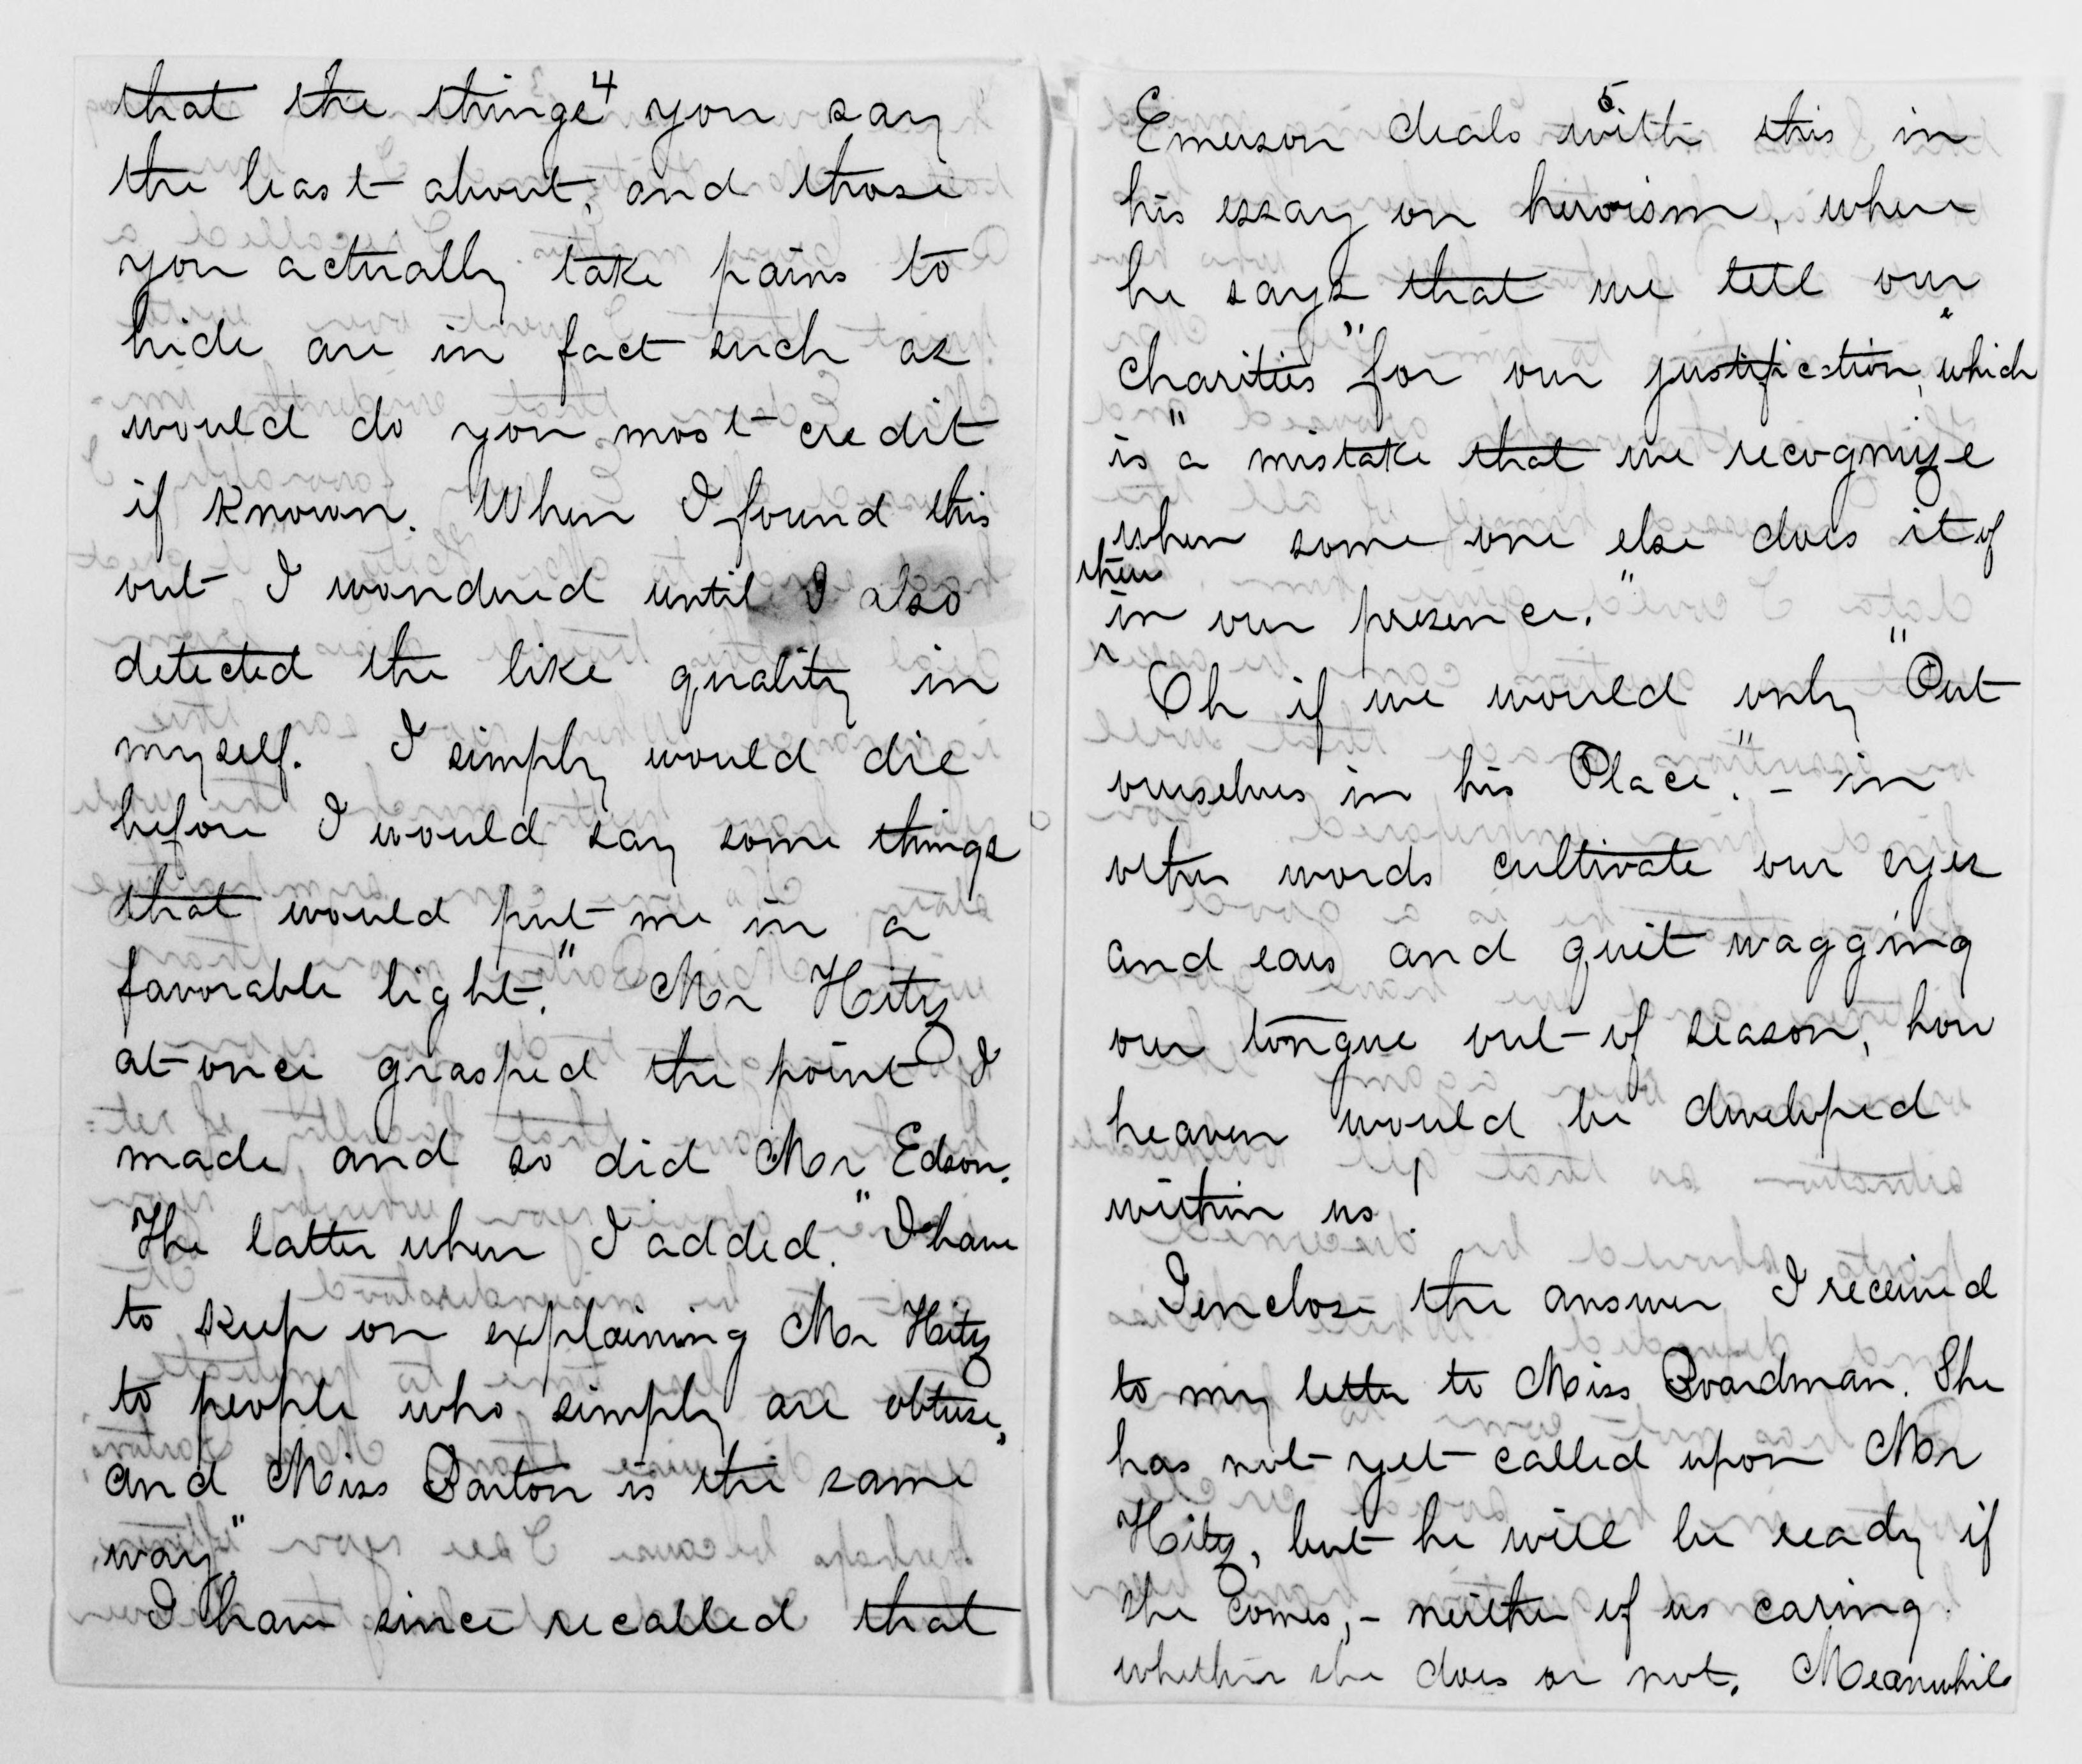 4
that the things you say
the least about, and those
you actually take pains to
hide are in fact such as
would do you most credit
if known. When I found this
out I wondered until I also
detected the like quality in
myself. I simply would die
before I would say some things
that would put me in a
favorable light." Mr Hitz
at once grasped the point I
made and so did Mr Edson.
The latter when I added. "I have
to keep on explaining Mr Hitz
to people who simply are obtuse,
and Miss Barton is the same
way"
I have since recalled that
5
Emerson deals with this in
his essay on heroism, where
he says that we tell our
charities "for our justification," which
is "a mistake that we recognize
when some one else does it of
theirs
in our presence."
Oh if we would only "Put
ourselves in his Place". - in
other words cultivate our eyes
and ears and quit wagging
our tongue out of season, how
heaven would be developed
within us!
I enclose the answer I received
to my letter to Miss Boardman. She
has not yet called upon Mr
Hitz, but he will be ready if
she comes, - neither of us caring
whether she does or not. Meanwhile